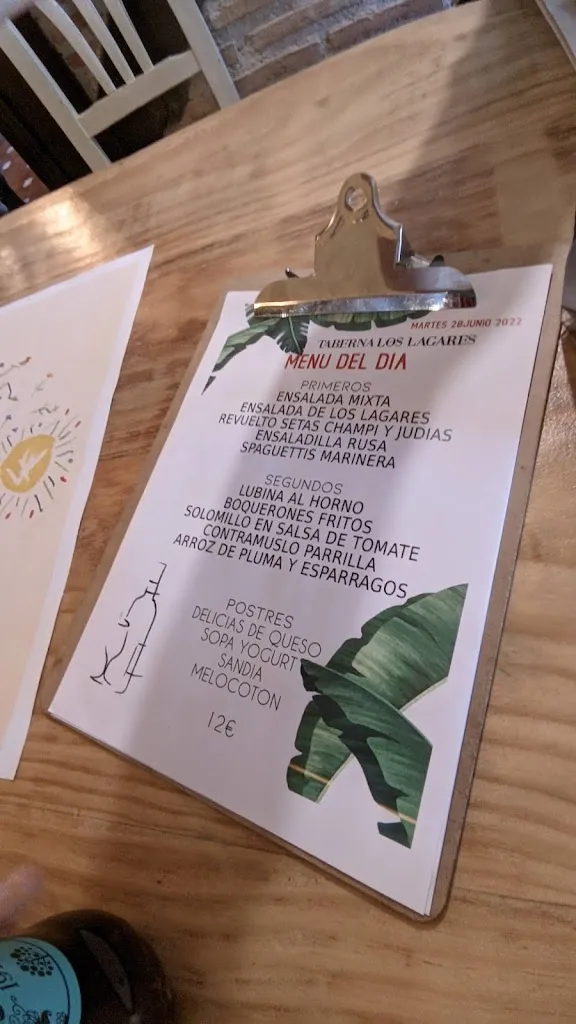 MARTES 28JUNIO 2022
TABERNA LOS LAGARES
MENU DEL DIA
PRIMEROS
ENSALADA MIXTA
ENSALADA DE LOS LAGARES
REVUELTO SETAS CHAMPI Y JUDIAS
ENSALADILLA RUSA
SPAGUETTIS MARINERA
SEGUNDOS
LUBINA AL HORNO
BOQUERONES FRITOS
SOLOMILLO EN SALSA DE TOMATE
CONTRAMUSLO PARRILLA
ARROZ DE PLUMA Y ESPARRAGOS
POSTRES
DELICIAS DE QUESO
SOPA YOGURT
SANDIA
MELOCOTON
12€